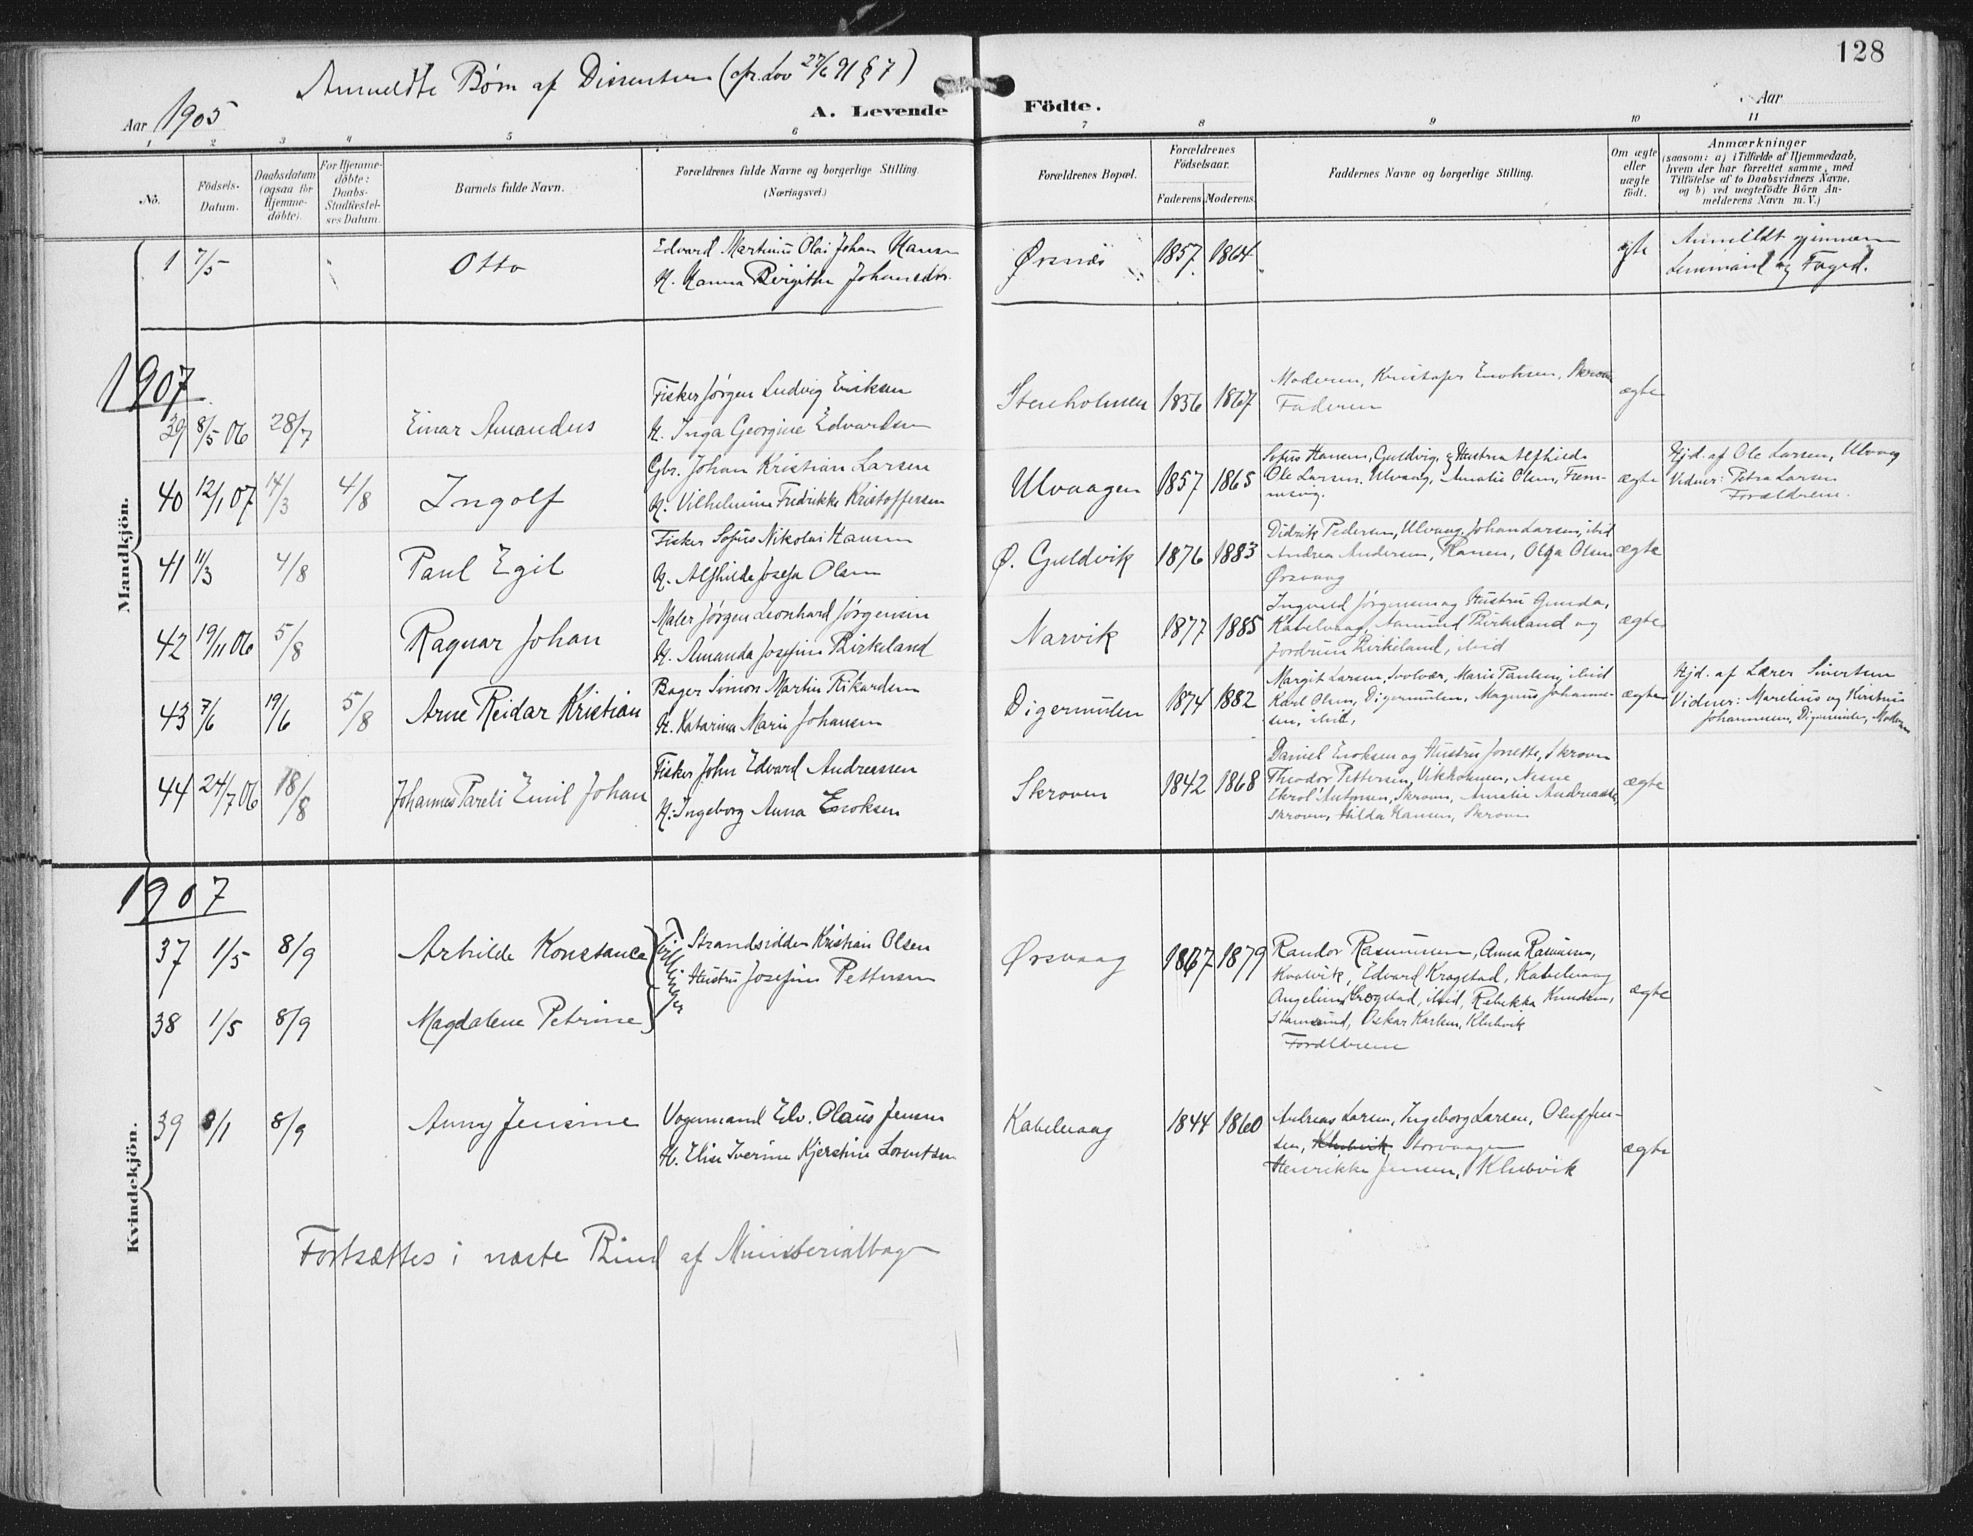 128
Anmeldte Børn af Dissentere (cfr. Lov 27/6 91 § 7)
Aar 1905
A. Levende Födte.
Aar
1 2 3 4 5 6 7 8 9 10 11
No.
Födsels-Datum.
Daabsdatum (ogsaa for Hjemmedöbte).
For Hjemmedöbte: Daabs-Stadfæstelses Datum.
Barnets fulde Navn.
Forældrenes fulde Navne og borgerlige Stilling. (Næringsvei.)
Forældrenes Bopæl.
Forældrenes Födselsaar.
Faderens Moderens
Faddernes Navne og borgerlige Stilling.
Om ægte eller uægte födt.
Anmærkninger
(saasom: a) i Tilfælde af Hjemmedaab, hvem der har forrettet samme, med Tilföielse af to Daabsvidners Navne, og b) ved uægtefödte Börn Anmelderens Navn m. V.)
Mandkjön.
1 7/5 Otto
Edvard Martinus Olai Johan Hansen
H. Hanna Birgitte Johansdtr.
Ørsnes 1857 1864 ægte
Anmeldt gjennem
Lensmand og Foged.
1907
39 8/5 06 28/7 Einar Amandus
Fisker Jørgen Ludvig Eriksen
H. Inga Georgine Edvardsen
Stenholmen 1856 1867
Moderen, Kristofer Enoksen, Skroven
Faderen
ægte
40 12/1 07 14/3 4/8 Ingolf
Gbr. Johan Kristian Larsen
H. Vilhelmine Fredrikke Kristoffersen
Ulvaagen 1857 1865
Sofus Hansen, Guldvig, og Hustru Alfhilde
Ole Larsen, Ulvaag, Amalie Olsen,
ægte
Hjd. af Ole Larsen, Ulvaag
Vidner: Petra Larsen
Forældrene.
41 11/3 4/8 Paul Egil
Fisker Sofus Nikolai Hansen
H. Alfhilde Josefa Olsen
Ø. Guldvik 1876 1883
Didrik Pedersen, Ulvaag, Johan Larsen, ibid
Andrea Andersen, Olga Olsen
Ørsvaag
ægte
42 19/11 06 5/8 Ragnar Johan
Maler Jørgen Leonhard Jørgensen
H. Amanda Josefine Birkeland
Narvik 1877 1885
Ingvald Jørgensen og Hustru Gunda,
Kabelvaag, Aamund Birkeland og
Jordrun Birkeland, ibid
ægte
43 7/6 19/6 5/8 Arne Reidar Kristian
Bager Simon Martin Rikardsen
H. Katarina Marie Johansen
Digermulen 1874 1882
Margit Larsen, Svolvær, Marie Paulsen, ibid
Karl Olsen, Digermulen, Magnus Johanne-
sen, ibid,
ægte
Hjd. af Lærer Sivertsen
Vidner: Marelius og Kirstine
Johannesen, Digermulen, Moderen
44 24/7 06 18/8 Johannes Pareli Emil Johan
Fisker John Edvard Andreassen
H. Ingeborg Anna Enoksen
Skroven 1842 1868
Daniel Enoksen og Hustru Jonette, Skroven
Theodor Pettersen, Vikholmen, Nesne
Ekrol Antonsen, Skroven, Amalie Andreassen,
Skroven, Hilda Hansen, Skroven
ægte
Kvindekjön.
1907
37 1/5 8/9 Arhilde Konstance
Tvillinger
Strandsidder Kristian Olsen
Hustru Josefine Pettersen
Ørsvaag 1867 1879
Randor Rasmussen, Anna Rasmussen,
Kvalvik, Edvard Kragstad, Kabelvaag
Angeline Kragstad, ibid, Rebekka Knudsen,
Stamsund, Oskar Karlsen, Klubvik
Forældrene
ægte
38 1/5 8/9 Magdalene Petrine
39 8/1 8/9 Anny Jensine
Vognmand Edv. Olaus Jensen
H. Elise Iverine Kjerstine Lorentsen
Kabelvaag 1844 1860
Andreas Larsen, Ingeborg Larsen, Oluf Jen-
sen, Klubvik Storvaagen
Henrikke Jensen, Klubvik
ægte
Fortsættes i næste Bind af Ministerialbogen